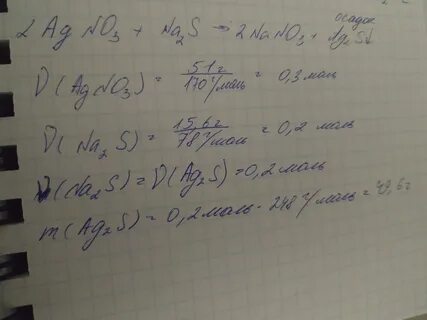 осадок
2 AgNO₃ + Na₂S → 2NaNO₃ + Ag₂S↓
ν(AgNO₃) = 51г / 170 г/моль = 0,3 моль
ν(Na₂S) = 15,6г / 78 г/моль = 0,2 моль
ν(Na₂S) = ν(Ag₂S) = 0,2 моль
m(Ag₂S) = 0,2 моль · 248 г/моль = 49,6г